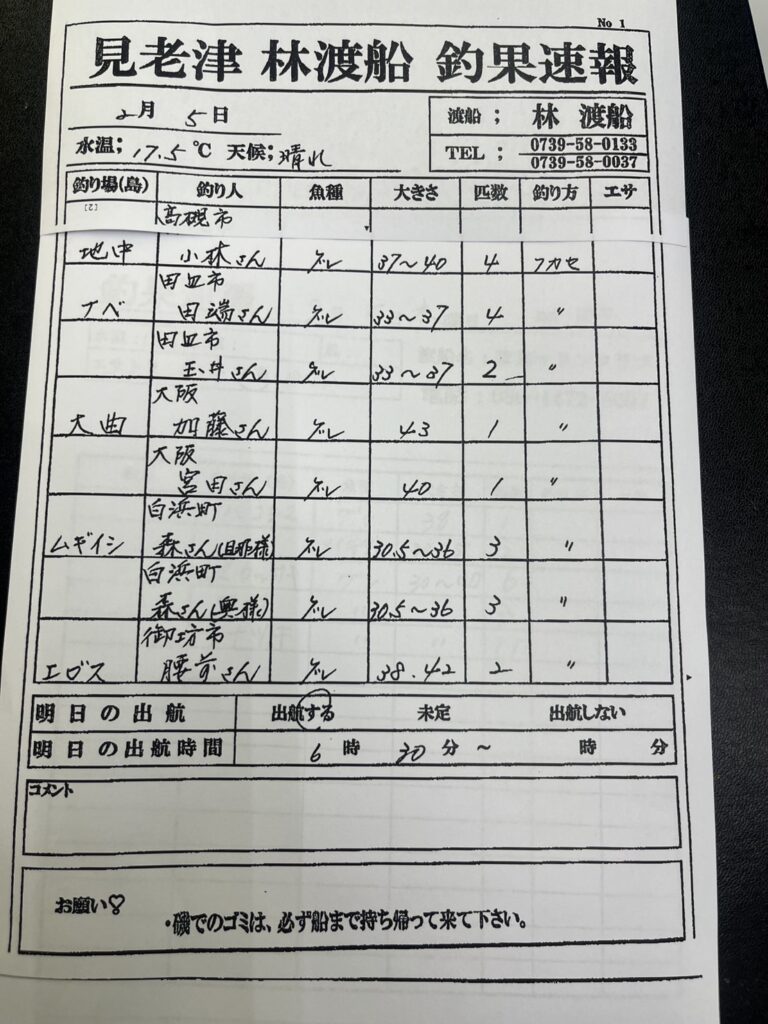 No 1
見老津 林渡船 釣果速報
2月 5日
渡船; 林 渡船
水温; 17.5℃ 天候; 晴れ
TEL; 0739-58-0133
0739-58-0037
釣り場(島) 釣り人 魚種 大きさ 匹数 釣り方 エサ
[2]
高槻市
地中 小林さん グレ 37〜40 4 フカセ
田辺市
ナベ 田端さん グレ 33〜37 4 〃
田辺市
玉井さん グレ 33〜37 2 〃
大阪
大曲 加藤さん グレ 43 1 〃
大阪
宮田さん グレ 40 1 〃
白浜町
ムギイシ 森さん(旦那様) グレ 30.5〜36 3 〃
白浜町
森さん(奥様) グレ 30.5〜36 3 〃
御坊市
エボス 腰前さん グレ 38.42 2 〃
明日の出航 出航する 未定 出航しない
明日の出航時間 6時 30分 〜 時 分
コメント
お願い♡
・磯でのゴミは、必ず船まで持ち帰って来て下さい。